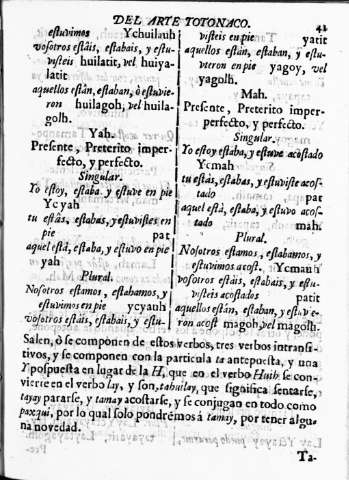 DEL ARTE TOTONACO.
42
estuvimos Ychuilauh
vosotros estàis, estabais, y estu-
visteis huilatit, vel huiya-
latit
aquellos estàn, estaban, ò estuvie-
ron huilagoh, vel huila-
golh.
Yah.
Presente, Preterito imper-
fecto, y perfecto.
Singular.
Yo estoy, estaba. y estuve en pie
Ycyah
tu estàs, estabas, y estuvistes en
pie pat
aquel està, estaba, y estuvo en pie
yah
Plural.
Nosotros estamos, estabamos, y
estuvimos en pie ycyauh
vosotros estàis, estabais, y estu-
visteis en pie yatit
aquellos estàn, estaban, y estu-
vieron en pie yagoy, vel
yagolh.
Mah.
Presente, Preterito imper-
perfecto, y perfecto.
Singular.
Yo estoy estaba, y estuve acostado
Ycmah
tu estàs, estabas, y estuviste acos-
tado pat
aquel està, estaba, y estuvo acos-
tado mah.
Plural.
Nosotros estamos, estabamos, y
estuvimos acost. Ycmauh
vosotros estàis, estabais, y estu-
visteis acostados patit
aquellos estàn, estaban, y estuvie-
ron acost magoh, vel magolh.
Salen, ò se componen de estos verbos, tres verbos intransi-
tivos, y se componen con la particula ta antepuesta, y una
Y pospuesta en lugar de la H, que en el verbo Huib se con-
vierte en el verbo lay, y son, tahuilay, que significa sentarse,
tayay pararse, y tamay acostarse, y se conjugan en todo como
paxqui, por lo qual solo pondrèmos à tamay, por tener algu-
na novedad.
Ta-